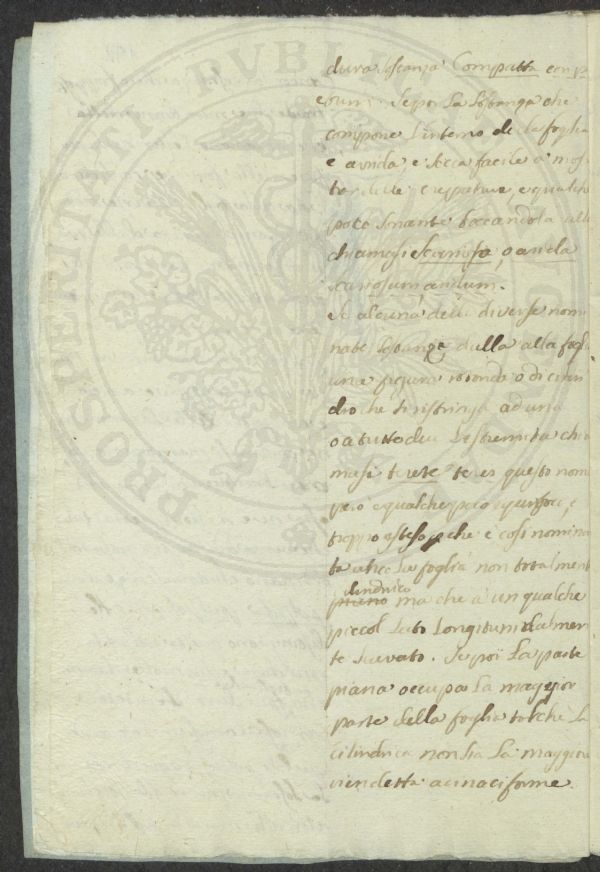 dura sostanza Compatta comp
actum. Se poi la sostanza che
compone l'interno della foglia
e arida, e secca facile a mos
trar delle crepature, e qualche
poco sonante toccandola allo
chiamasi Scariosa, o arida
scariosum aridum.
Se alcuna delle diverse nomi
nate sostanze dalla alla foglia
una figura rotonda o di cilin
dro che si ristringa ad una
o a tutte due l'estremita chia
masi terete teres questo nome
però è qualche poco equivoco, e
troppo esteso che e così nomina
ta anco la foglia non totalment
cilindrico
piano ma che à un qualche
piccol lato longitudinalmen
te scavato. Se poi la parte
piana occupa la maggior
parte della foglia talchè la
cilindrica non sia la maggiore
vien detta acinaciforme.
PROSPERITATI PUBLICAE